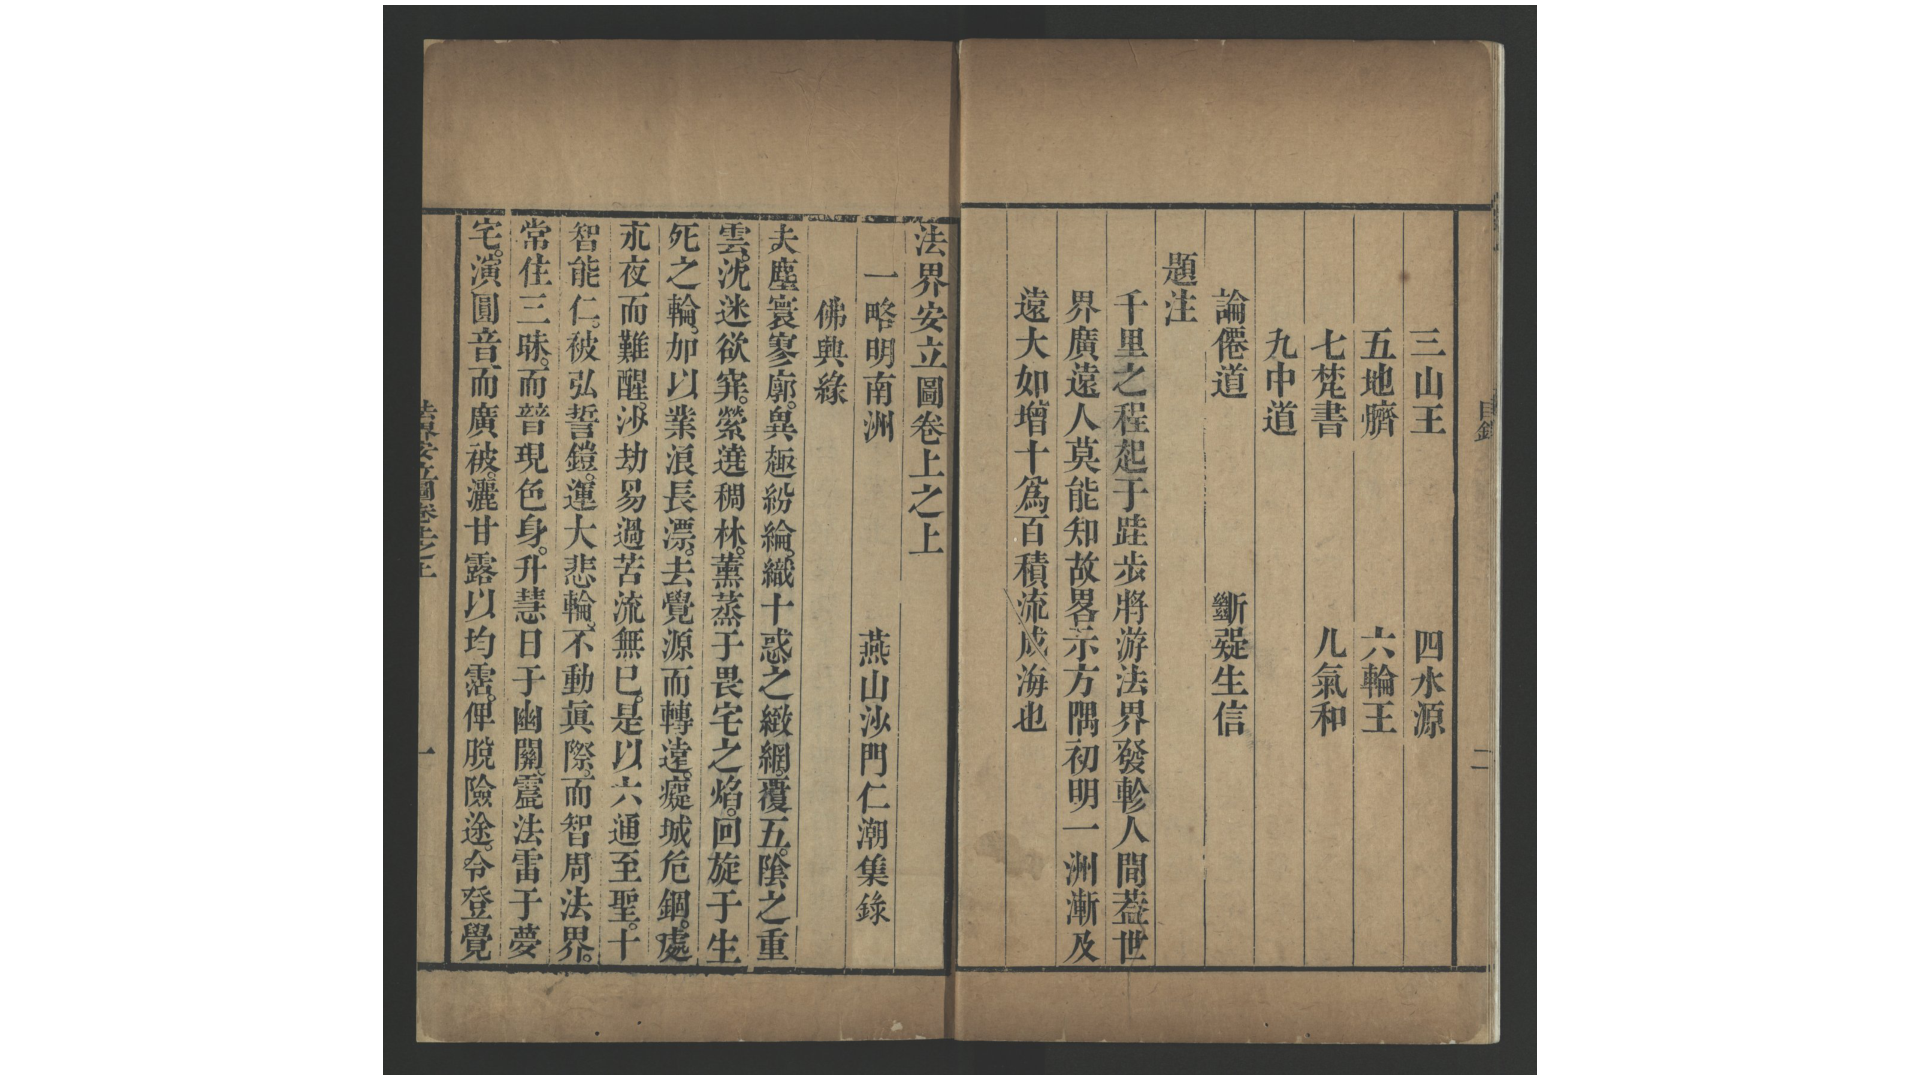 目錄 二
三山王 四水源
五地臍 六輪王
七梵書 八氣和
九中道
論僊道 斷疑生信
題注
千里之程起于跬步將游法界發軫人間蓋世
界廣遠人莫能知故畧示方隅初明一洲漸及
遠大如增十爲百積流成海也
法界安立圖卷上之上
一略明南洲 燕山沙門仁潮集錄
佛興緣
夫塵寰寥廓。異趣紛綸。織十惑之緻網。覆五陰之重
雲。沈迷欲穽。縈遶稠林。薰蒸于畏宅之焰。回旋于生
死之輪。加以業浪長漂。去覺源而轉遠。癡城危錮。處
永夜而難醒。沙劫易過苦流無已。是以六通至聖。十
智能仁。被弘誓鎧。運大悲輪。不動眞際。而智周法界。
常住三昧。而普現色身。升慧日于幽關。震法雷于夢
宅。演圓音而廣被。灑甘露以均霑。俾脫險途。令登覺
法界安立圖卷上之上 一